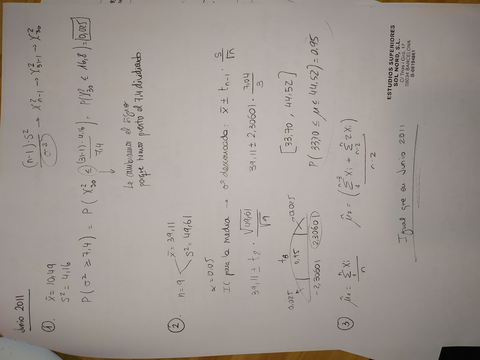 Junio 2011
① x̄ = 10,49
S² = 4,16
(n-1)·S² / σ² → X²n-1 → X²31-1 → X²30
P(σ² ≥ 7,4) = P(X²30 ≤ (31-1)·4,16 / 7,4) = P(X²30 ≤ 16,8) = 0,025
Le cambiamos el signo
porque hemos puesto el 7,4 dividiendo
② n = 9
x̄ = 39,11
S² = 49,61
α = 0,05
IC para la media → σ² desconocida: x̄ ± tn-1 · S/√n
39,11 ± t8 · √49,61/√9
39,11 ± 2,30601 · 7,04/3
t8
0,025 0,95 0,025
-2,30601 2,30601
[33,70, 44,52]
P(33,70 ≤ μ ≤ 44,52) = 0,95
③ μ̂1 = Σ Xi / n
μ̂2 = (Σ Xi + Σ 2Xi) / n-2
Igual que en Junio 2011
ESTUDIOS SUPERIORES
SOL NORD, S.L.
08034 BARCELONA